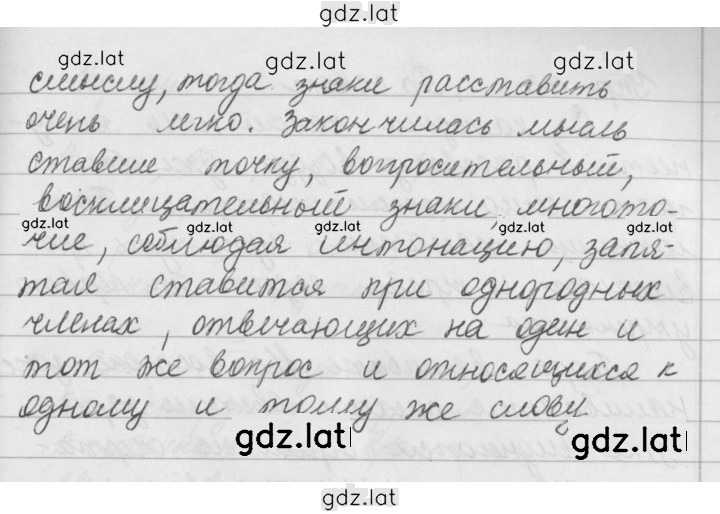 gdz.lat
gdz.lat gdz.lat gdz.lat
смыслу, тогда знаки расставить
очень легко. Закончилась мысль
ставим точку, вопросительный,
восклицательный знаки, многото-
gdz.lat gdz.lat gdz.lat gdz.lat gdz.lat
чие, соблюдая интонацию, запя-
тая ставится при однородных
членах, отвечающих на один и
тот же вопрос и относящихся к
одному и тому же слову
gdz.lat gdz.lat
gdz.lat